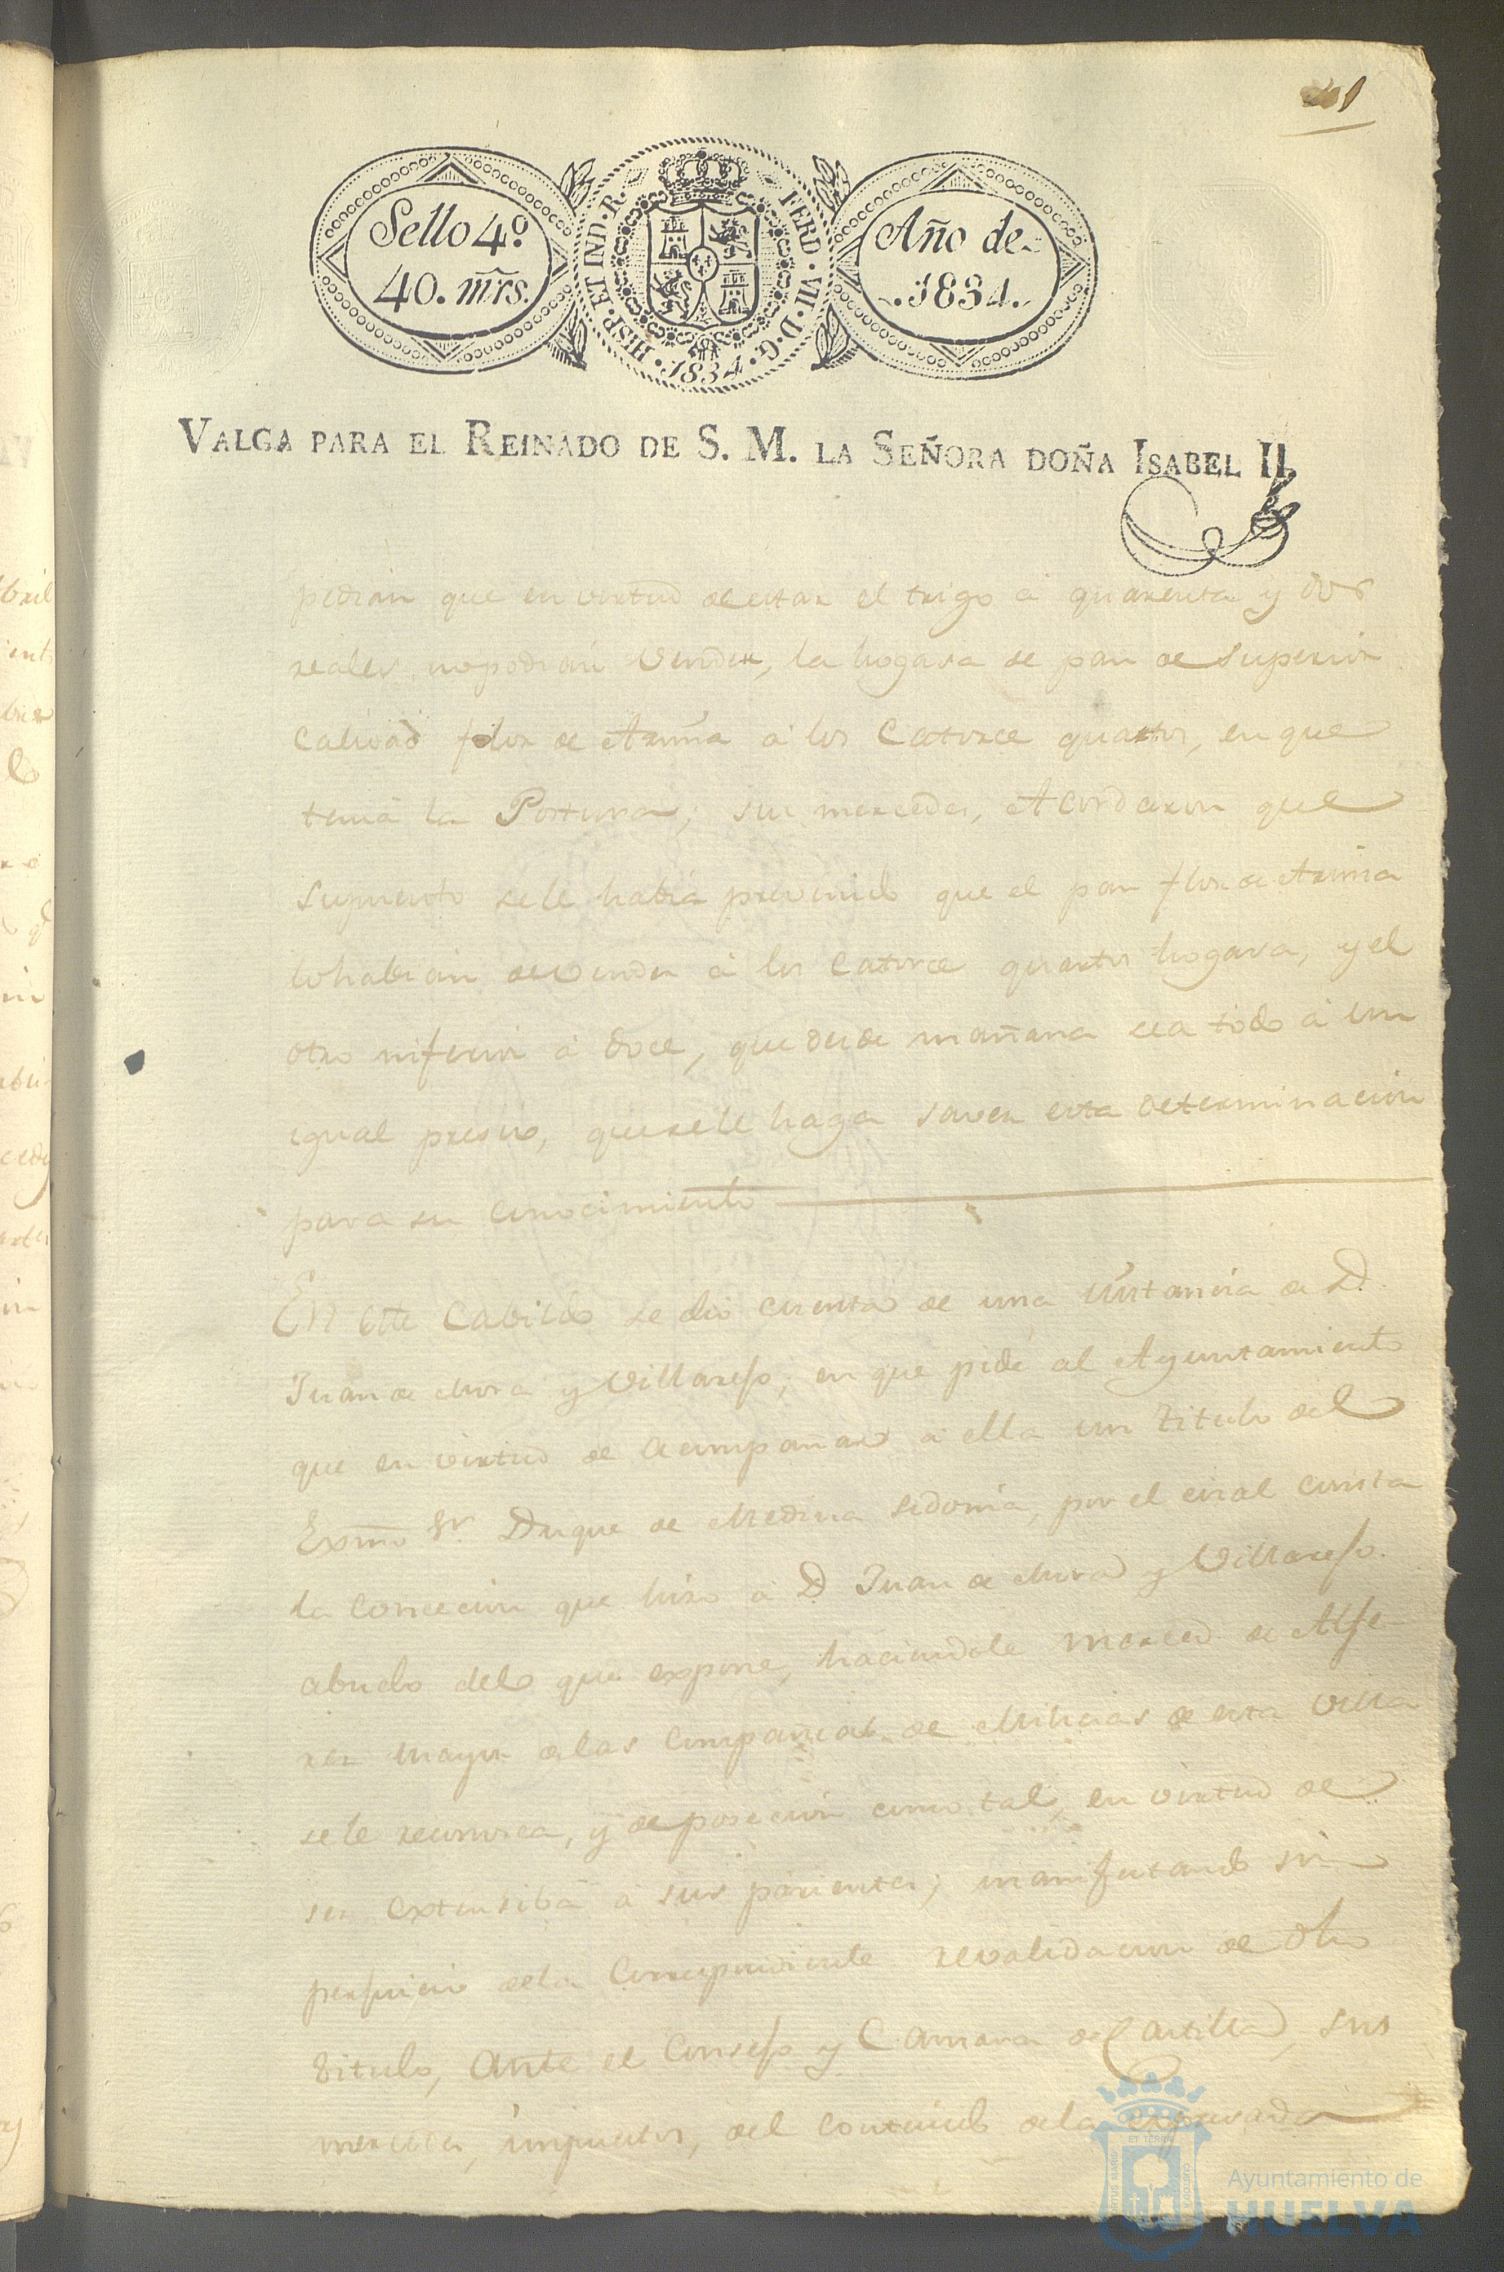 Sello 4º
40. mrs.
HISP. ET IND. R. FERD. VII. D. G. 1834.
Año de
1834.
VALGA PARA EL REINADO DE S. M. LA SEÑORA DOÑA ISABEL II.
pedian que en virtud de estar el trigo á quarenta y dos
reales no podian vender, la hogasa de pan de superior
calidad flor de Arina á los catorce quartos, en que
tenia la Postura; sus mercedes, Acordaron que
supuesto sele habia prevenido que el pan flor de Arina
lo habian de vender á los catorce quartos hogasa, y el
otro inferior á doce, que desde mañana sea todo á un
igual presio, que sele haga saver esta determinacion
para su conocimiento
En este Cabildo se dio cuenta de una instancia de D.
Juan de Mora y Villarejo; en que pide al Ayuntamiento
que en virtud de acompañar a ella un titulo del
Exmo Sr. Duque de Medina Sidonia, por el cual consta
la concecion que hiso a D Juan de Mora y Villarejo.
abuelo del que expone, haciendole merced de Alfe-
rez mayor de las compañias de Milicias de esta villa
sele reconosca, y de posecion como tal, en virtud de
ser extensiba á sus parientes; manifestando sin
perjuicio de la correspondiente revalidacion de dho
titulo, ante el Consejo y Camara de Castilla, sus
mercedes, impuestos, del contenido de la expresada
Ayuntamiento de
HUELVA